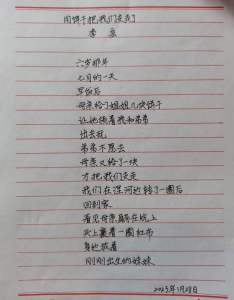 用饼干把我们支走了
李
六岁那年
七月的一天
早饭后
母亲给了姐姐几块饼干
让她领着我和弟弟
出去玩
弟弟不愿去
母亲又给了一块
才把我们支走
我们在滹河边转了一圈后
回到家
看见母亲躺在炕上
头上裹着一圈红布
身边放着
刚刚出生的妹妹
2023年7月28日